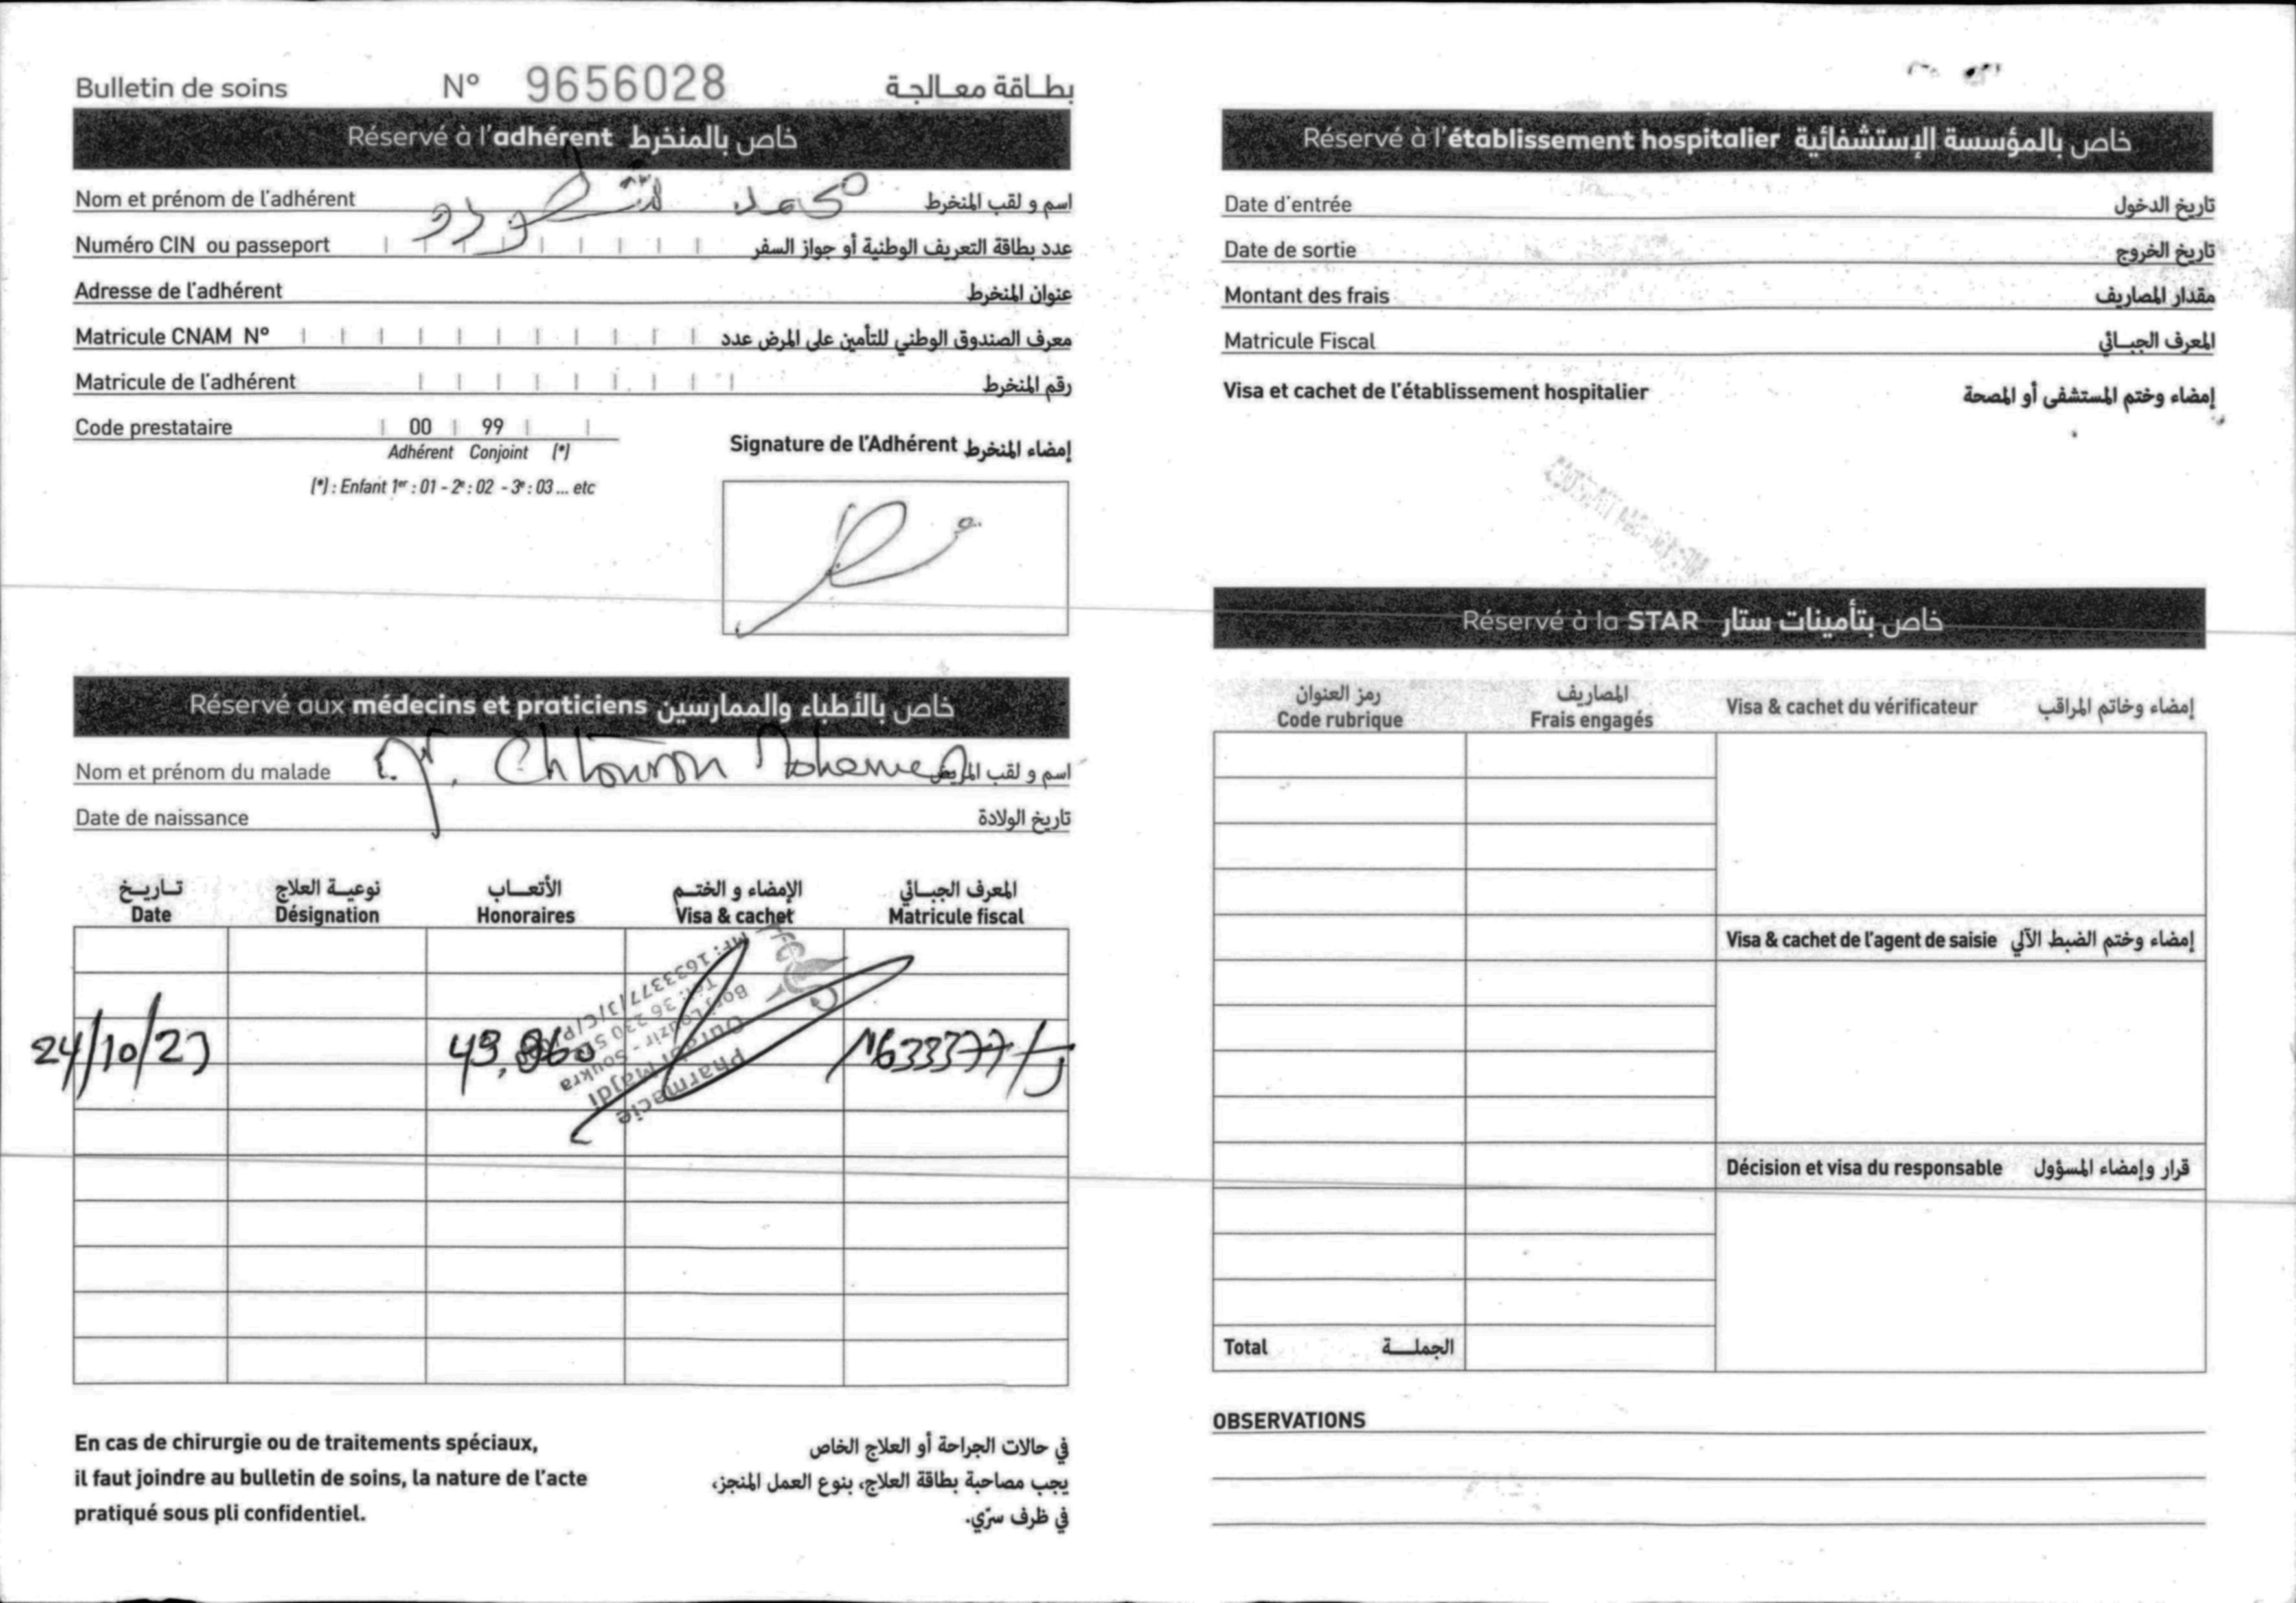 Bulletin de soins N° 9656028 بطاقة معالجة
Réservé à l'adhérent خاص بالمنخرط
Nom et prénom de l'adhérent محمد شطورو اسم و لقب المنخرط
Numéro CIN ou passeport عدد بطاقة التعريف الوطنية أو جواز السفر
Adresse de l'adhérent عنوان المنخرط
Matricule CNAM N° معرف الصندوق الوطني للتأمين على المرض عدد
Matricule de l'adhérent رقم المنخرط
Code prestataire 00 99
Adhérent Conjoint (*)
(*) : Enfant 1er : 01 - 2e : 02 - 3e : 03 ... etc
Signature de l'Adhérent إمضاء المنخرط
Réservé aux médecins et praticiens خاص بالأطباء والممارسين
Nom et prénom du malade Chtourou Mohamed اسم و لقب المريض
Date de naissance تاريخ الولادة
تاريخ نوعية العلاج الأتعاب الإمضاء و الختم المعرف الجبائي
Date Désignation Honoraires Visa & cachet Matricule fiscal
24/10/23 49,860 1633377/J
Pharmacie
Ourabi Majdi
Borj Louzir - Soukra
En cas de chirurgie ou de traitements spéciaux,
il faut joindre au bulletin de soins, la nature de l'acte
pratiqué sous pli confidentiel.
في حالات الجراحة أو العلاج الخاص
يجب مصاحبة بطاقة العلاج، بنوع العمل المنجز،
في ظرف سرّي.
Réservé à l'établissement hospitalier خاص بالمؤسسة الإستشفائية
Date d'entrée تاريخ الدخول
Date de sortie تاريخ الخروج
Montant des frais مقدار المصاريف
Matricule Fiscal المعرف الجبائي
Visa et cachet de l'établissement hospitalier إمضاء وختم المستشفى أو المصحة
Réservé à la STAR خاص بتأمينات ستار
رمز العنوان المصاريف
Code rubrique Frais engagés Visa & cachet du vérificateur إمضاء وخاتم المراقب
Visa & cachet de l'agent de saisie إمضاء وختم الضبط الآلي
Décision et visa du responsable قرار وإمضاء المسؤول
Total الجملة
OBSERVATIONS